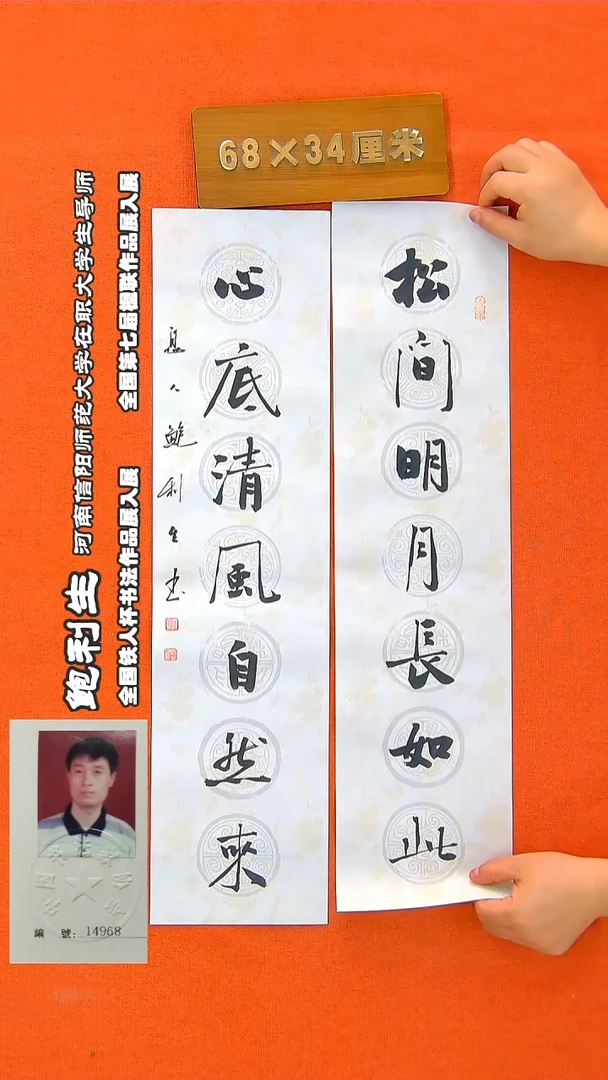 68×34厘米
松間明月長如此
心底清風自然來
鲍利生书
鲍利生 河南信阳师范大学在职大学生导师
全国铁人杯书法作品展入展 全国第七届楹联作品展入展
編 號：14968